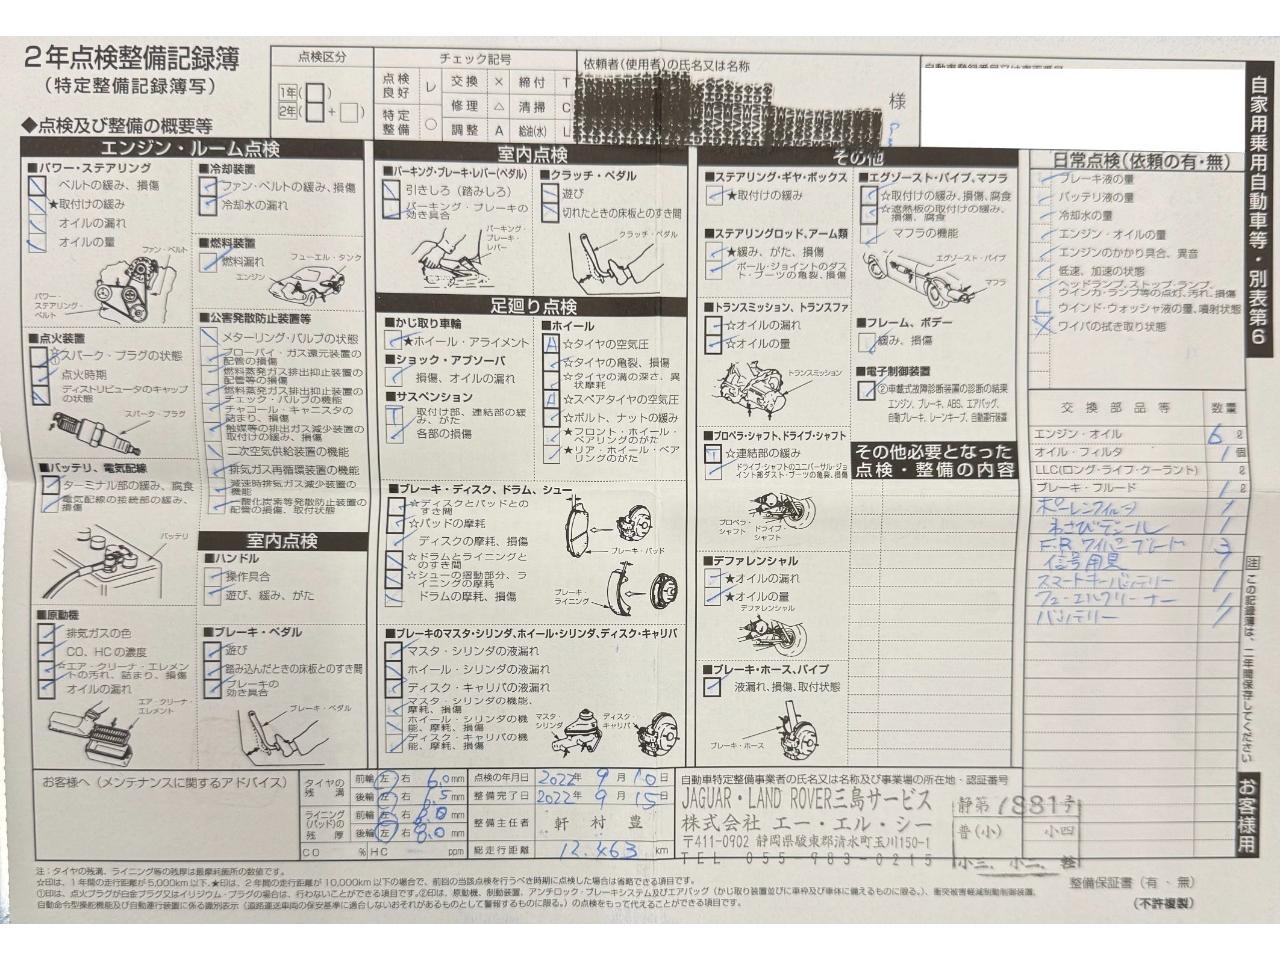 2年点検整備記録簿
(特定整備記録簿写)
点検区分
1年( )
2年( + )
チェック記号
点検良好 レ 交換 × 締付 T
修理 △ 清掃 C
特定整備 ○ 調整 A 給油(水) L
依頼者(使用者)の氏名又は名称
様
自家用乗用自動車等・別表第6
◆点検及び整備の概要等
エンジン・ルーム点検
■パワー・ステアリング
ベルトの緩み、損傷
★取付けの緩み
オイルの漏れ
オイルの量
ファン・ベルト
パワー・ステアリング・ベルト
■点火装置
☆スパーク・プラグの状態
点火時期
ディストリビュータのキャップの状態
スパーク・プラグ
■バッテリ、電気配線
ターミナル部の緩み、腐食
電気配線の接続部の緩み、損傷
バッテリ
■原動機
排気ガスの色
CO、HCの濃度
☆エア・クリーナ・エレメントの汚れ、詰まり、損傷
オイルの漏れ
エア・クリーナ・エレメント
■冷却装置
ファン・ベルトの緩み、損傷
冷却水の漏れ
■燃料装置
燃料漏れ
フューエル・タンク
エンジン
■公害発散防止装置等
メターリング・バルブの状態
ブローバイ・ガス還元装置の配管の損傷
燃料蒸発ガス排出抑止装置の配管等の損傷
燃料蒸発ガス排出抑止装置のチェック・バルブの機能
チャコール・キャニスタの詰まり、損傷
触媒等の排出ガス減少装置の取付けの緩み、損傷
二次空気供給装置の機能
排気ガス再循環装置の機能
減速時排気ガス減少装置の機能
一酸化炭素等発散防止装置の配管の損傷、取付状態
室内点検
■ハンドル
操作具合
遊び、緩み、がた
■ブレーキ・ペダル
遊び
踏み込んだときの床板とのすき間
ブレーキの効き具合
ブレーキ・ペダル
室内点検
■パーキング・ブレーキ・レバー(ペダル)
引きしろ(踏みしろ)
パーキング・ブレーキの効き具合
パーキング・ブレーキ・レバー
■クラッチ・ペダル
遊び
切れたときの床板とのすき間
クラッチ・ペダル
足廻り点検
■かじ取り車輪
★ホイール・アライメント
■ショック・アブソーバ
損傷、オイルの漏れ
■サスペンション
取付け部、連結部の緩み、がた
各部の損傷
■ホイール
☆タイヤの空気圧
☆タイヤの亀裂、損傷
☆タイヤの溝の深さ、異状摩耗
☆スペアタイヤの空気圧
☆ボルト、ナットの緩み
★フロント・ホイール・ベアリングのがた
★リア・ホイール・ベアリングのがた
■ブレーキ・ディスク、ドラム、シュー
☆ディスクとパッドとのすき間
☆パッドの摩耗
ディスクの摩耗、損傷
☆ドラムとライニングとのすき間
☆シューの摺動部分、ライニングの摩耗
ドラムの摩耗、損傷
ブレーキ・パッド
ブレーキ・ライニング
■ブレーキのマスタ・シリンダ、ホイール・シリンダ、ディスク・キャリパ
マスタ・シリンダの液漏れ
ホイール・シリンダの液漏れ
ディスク・キャリパの液漏れ
マスタ・シリンダの機能、摩耗、損傷
ホイール・シリンダの機能、摩耗、損傷
ディスク・キャリパの機能、摩耗、損傷
マスタ・シリンダ
ディスク・キャリパ
その他
■ステアリング・ギヤ・ボックス
★取付けの緩み
■ステアリングロッド、アーム類
★緩み、がた、損傷
ボール・ジョイントのダスト・ブーツの亀裂、損傷
■トランスミッション、トランスファ
☆オイルの漏れ
☆オイルの量
トランスミッション
■プロペラ・シャフト、ドライブ・シャフト
☆連結部の緩み
ドライブ・シャフトのユニバーサル・ジョイント部ダスト・ブーツの亀裂、損傷
プロペラ・シャフト
ドライブ・シャフト
■デファレンシャル
★オイルの漏れ
★オイルの量
デファレンシャル
■ブレーキ・ホース、パイプ
液漏れ、損傷、取付状態
ブレーキ・ホース
■エグゾースト・パイプ、マフラ
☆取付けの緩み、損傷、腐食
☆遮熱板の取付けの緩み、損傷、腐食
マフラの機能
エグゾースト・パイプ
マフラ
■フレーム、ボデー
緩み、損傷
■電子制御装置
②車載式故障診断装置の診断の結果
エンジン、ブレーキ、ABS、エアバッグ、自動ブレーキ、レーンキープ、自動運行装置
その他必要となった点検・整備の内容
日常点検(依頼の有・無)
ブレーキ液の量
バッテリ液の量
冷却水の量
エンジン・オイルの量
エンジンのかかり具合、異音
低速、加速の状態
ヘッドランプ、ストップ・ランプ、ウインカ・ランプ等の点灯、汚れ、損傷
ウインド・ウォッシャ液の量、噴射状態
ワイパの拭き取り状態
交換部品等 数量
エンジン・オイル 6 ℓ
オイル・フィルタ 1 個
LLC(ロング・ライフ・クーラント) ℓ
ブレーキ・フルード 1 ℓ
ポーレンフィルター 1
わさびデェール 1
F.R.ワイパーブレード 3
信号用具 1
スマートキーバッテリー 1
フューエルクリーナー 1
バッテリー 1
注 この記録簿は、二年間保存してください
お客様用
お客様へ(メンテナンスに関するアドバイス)
タイヤの残溝 前輪 左 右 6.0 mm
後輪 左 右 mm
ライニング(パッド)の残厚 前輪 左 右 8.0 mm
後輪 左 右 8.0 mm
CO % HC ppm
点検の年月日 2022年 9月 10日
整備完了日 2022年 9月 15日
整備主任者 軒村 豊
総走行距離 12,463 km
自動車特定整備事業者の氏名又は名称及び事業場の所在地・認証番号
JAGUAR・LAND ROVER三島サービス
株式会社 エー・エル・シー
〒411-0902 静岡県駿東郡清水町玉川150-1
TEL 055-983-0215
静第1881号
普(小) 小四
小三、小二、軽
注：タイヤの残溝、ライニング等の残厚は最摩耗箇所の数値です。
☆印は、1年間の走行距離が5,000km以下、★印は、2年間の走行距離が10,000km以下の場合で、前回の当該点検を行うべき時期に点検した場合は省略できる項目です。
①印は、点火プラグが白金プラグ又はイリジウム・プラグの場合は、行わないことができる項目です。②印は、原動機、制動装置、アンチロック・ブレーキシステム及びエアバッグ(かじ取り装置並びに車枠及び車体に備えるものに限る。)、衝突被害軽減制動制御装置、
自動命令型操舵機能及び自動運行装置に係る識別表示(道路運送車両の保安基準に適合しないおそれがあるものとして警報するものに限る。)の点検をもって代えることができる項目です。
整備保証書(有・無)
(不許複製)